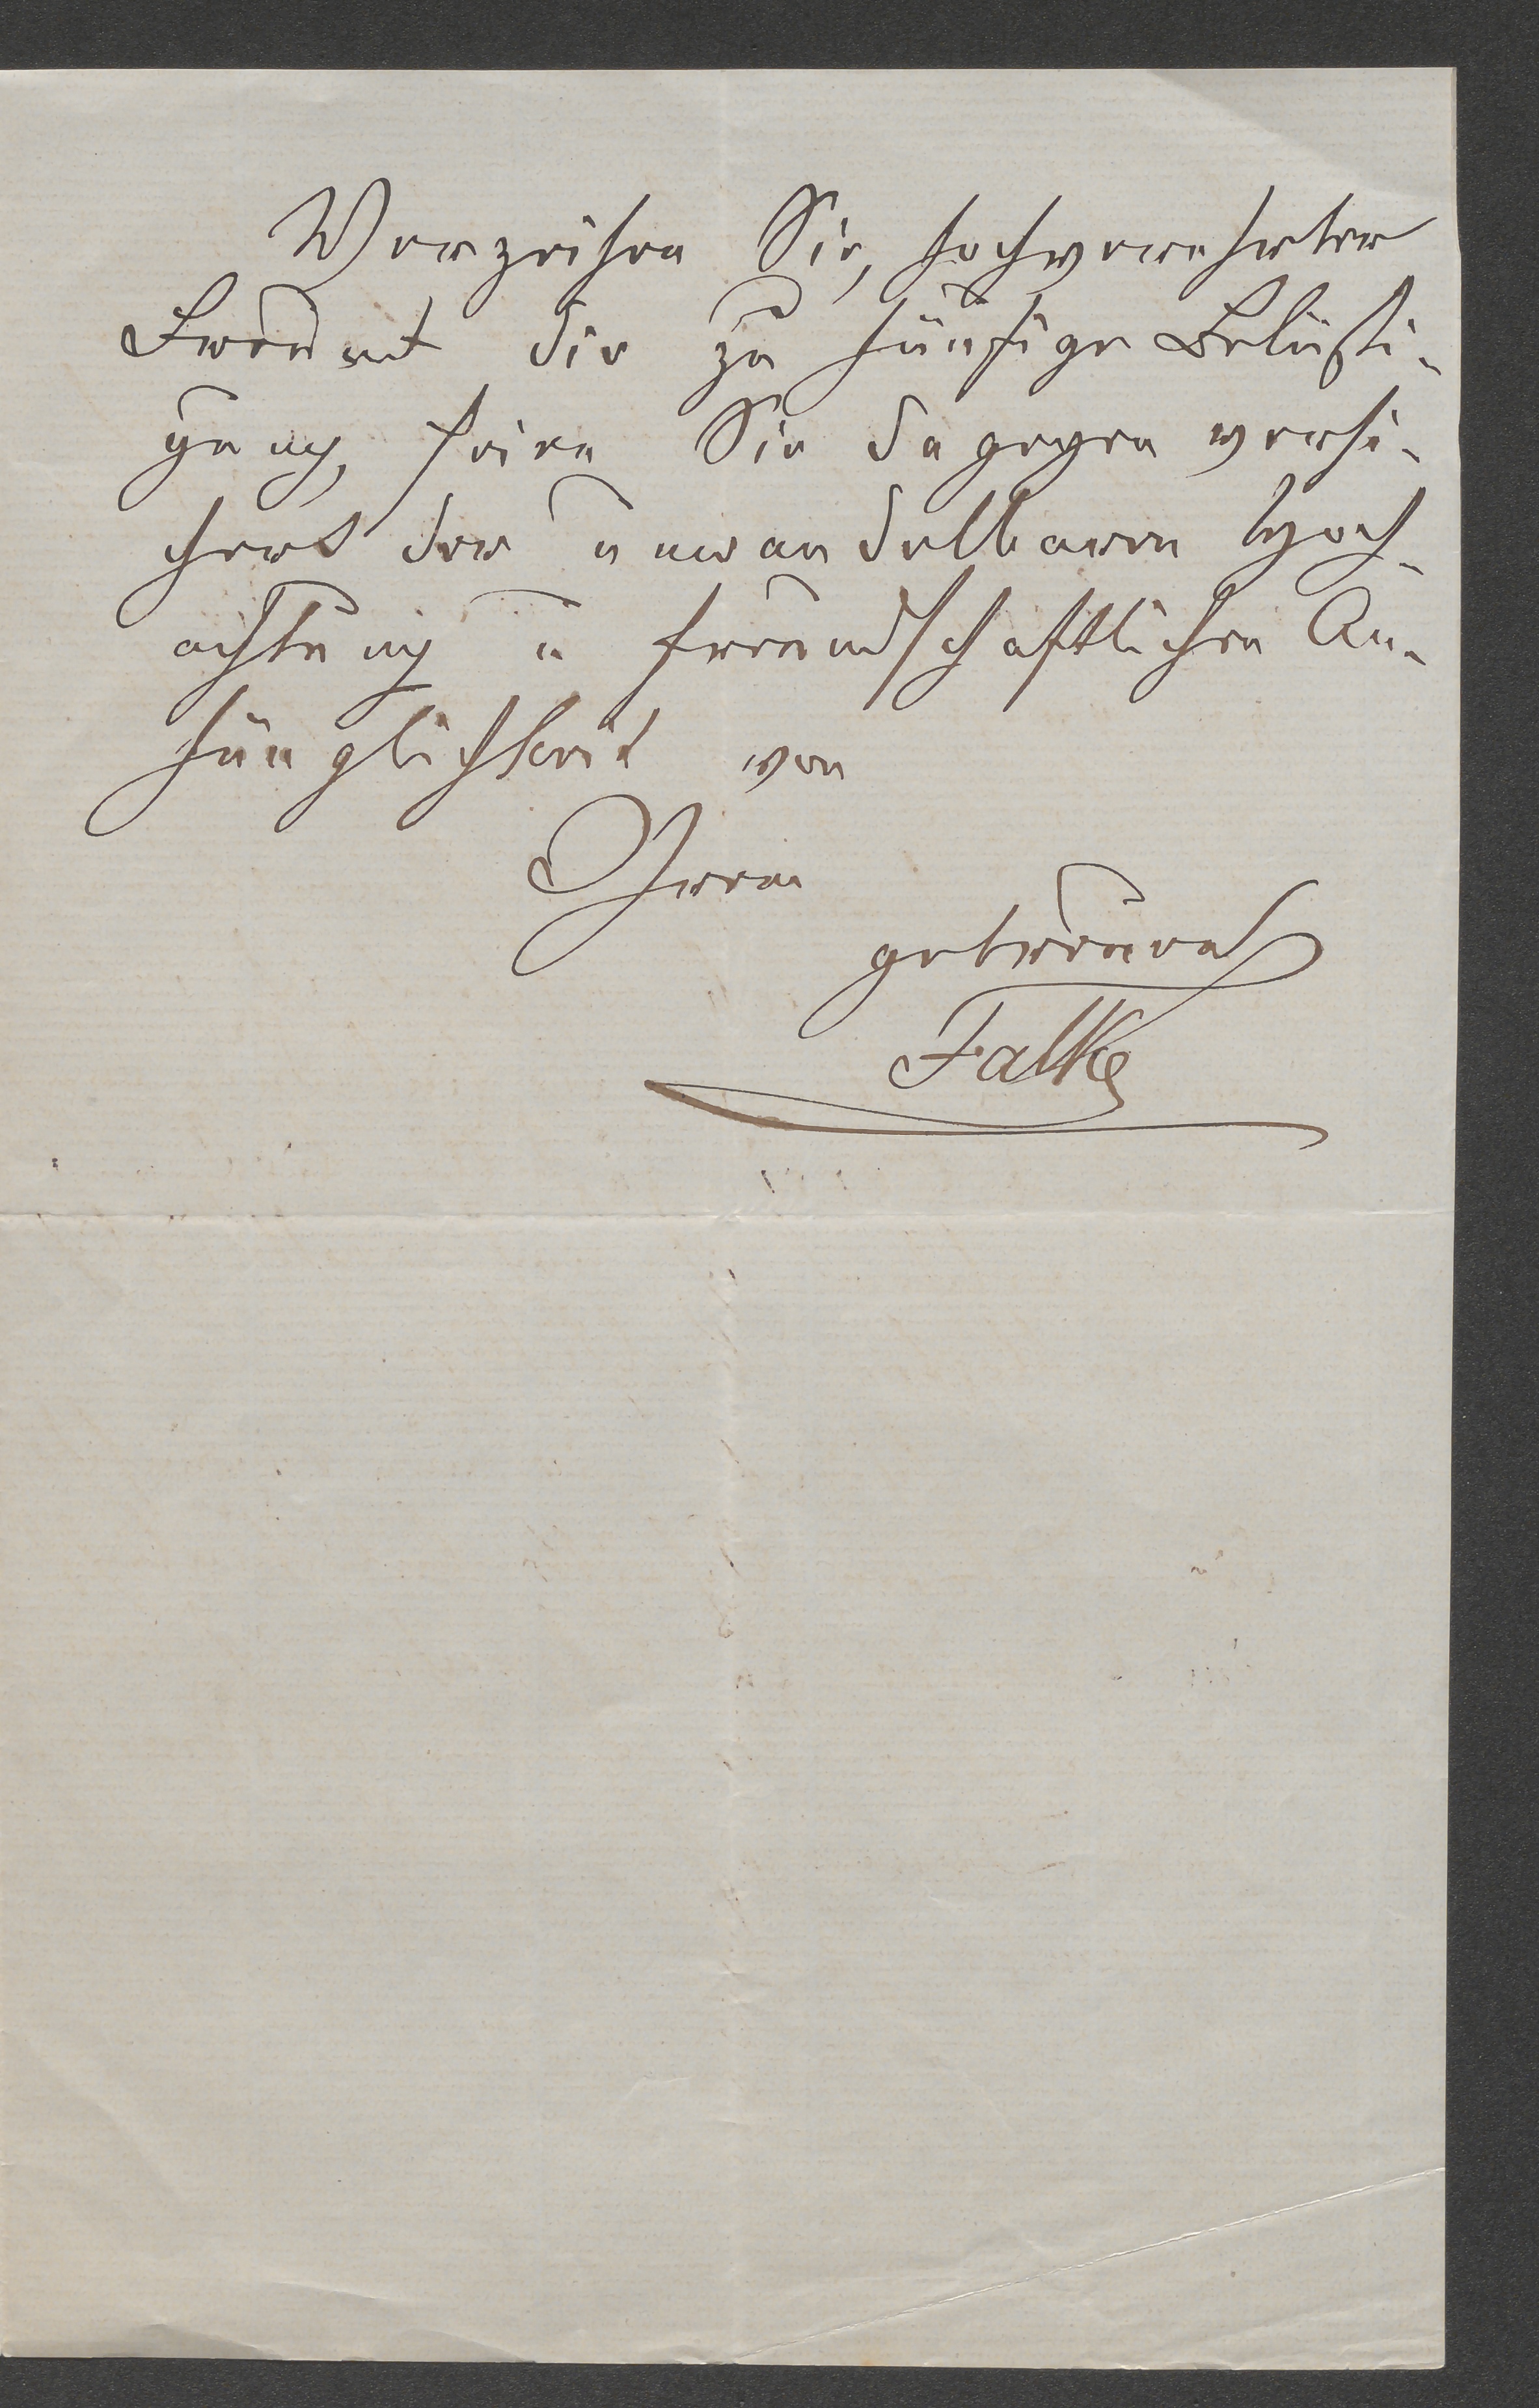 Verzeihen Sie, hochverehrter
Freund die zu häufige Belästi-
gung, seien Sie dagegen versi-
chert der unwandelbaren Hoch-
achtung u freundschaftlichen An-
hänglichkeit von
Ihrem
getreuen
Falke